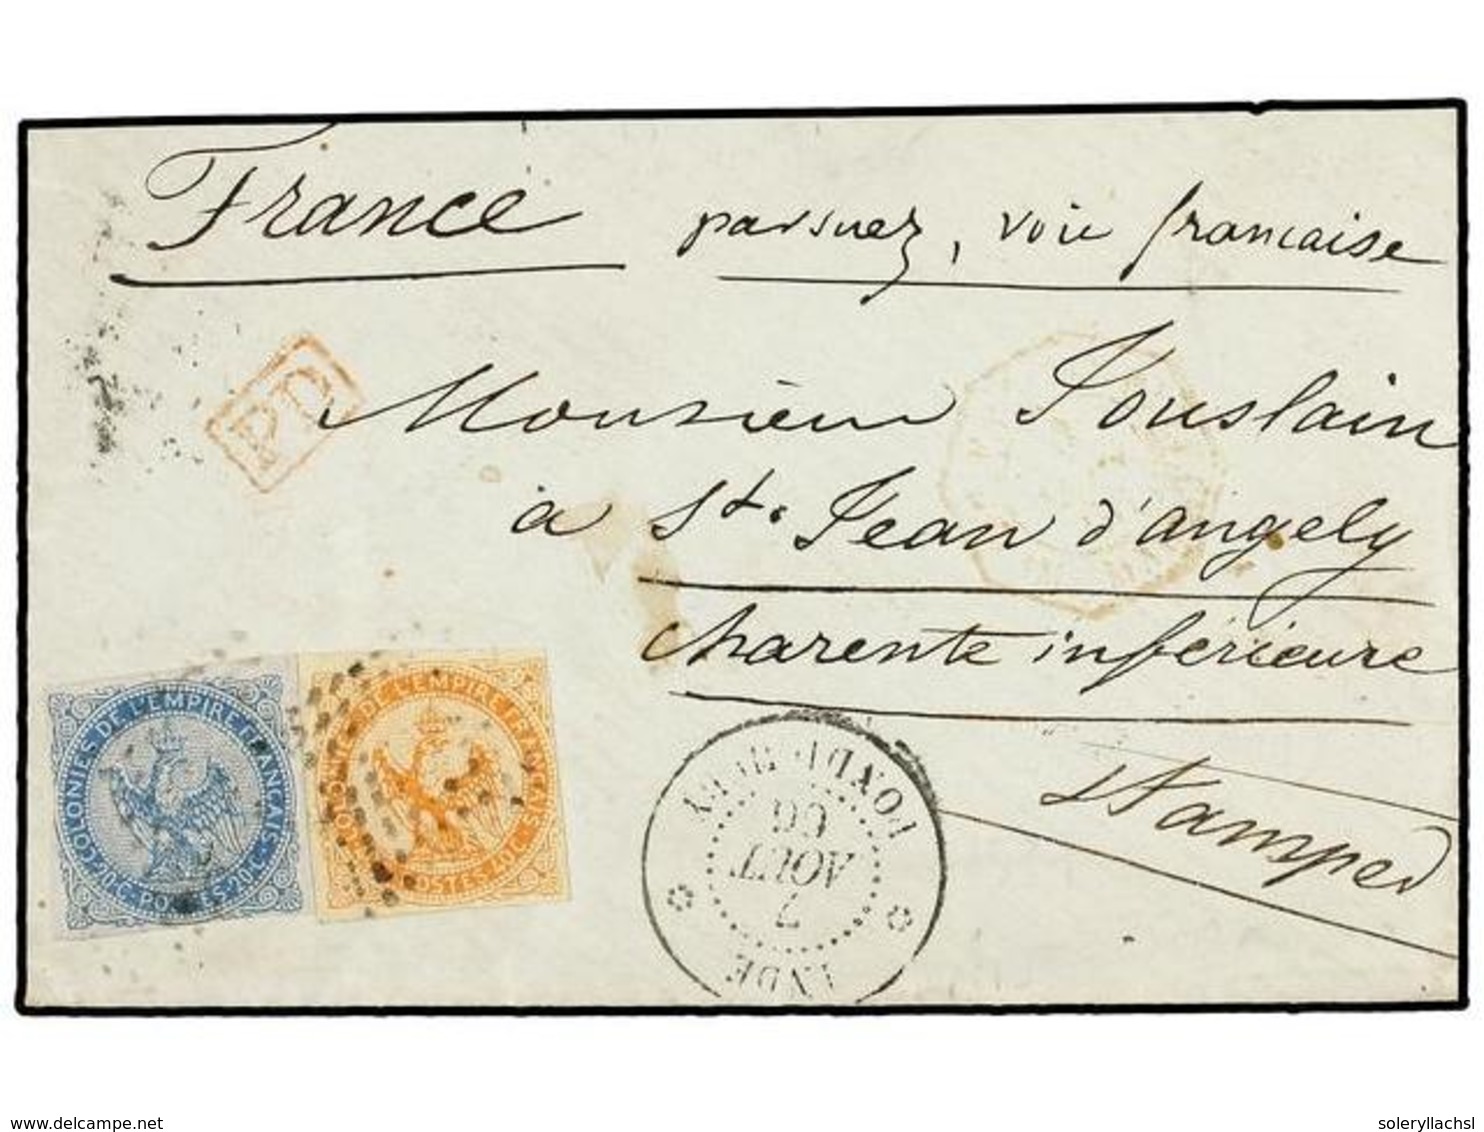 France parsuez, voie francaise
PD
Monsieur Jouslain
à St. Jean d'angely
charente inférieure
Stamped
COLONIES DE L'EMPIRE FRANÇAIS
20.C. POSTES. 20.C.
DE L'EMPIRE FRANÇAIS
POSTES. 40.C.
INDE
7
AOUT
66
delcampe.net
soleryllachsl